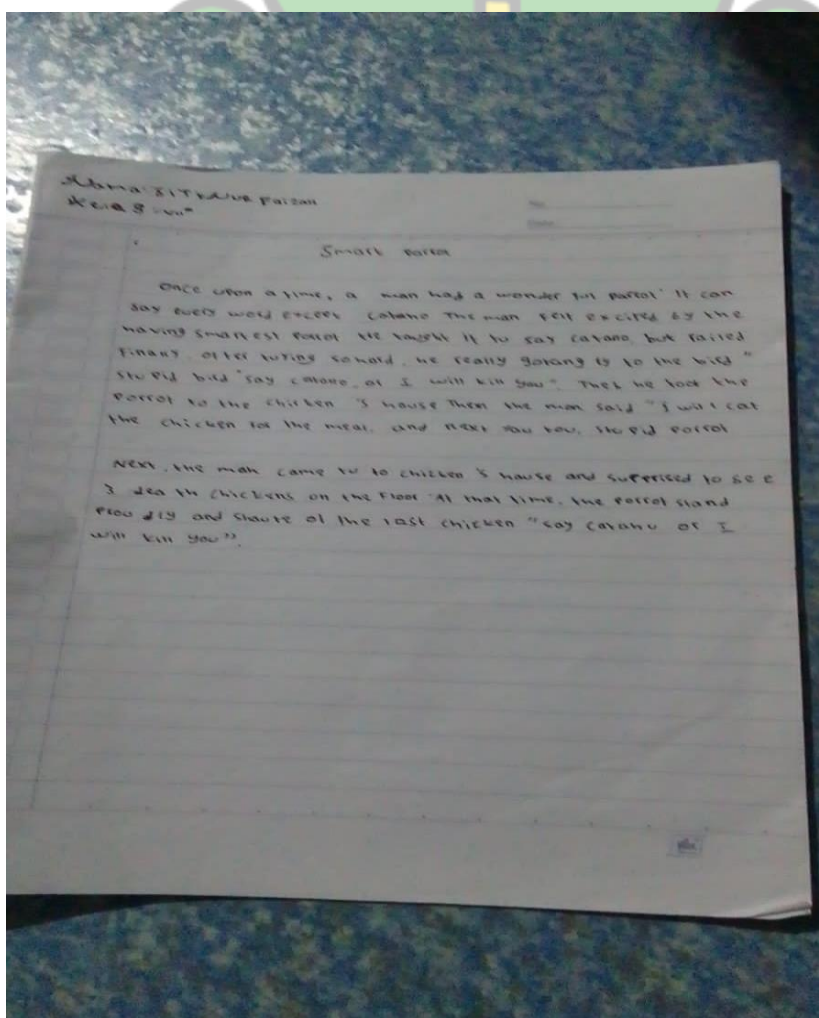 Nama: SITI Nur Faizah
Kelas: VII
Smart Parrot
Once upon a time, a man had a wonder ful parrot. It can
say every word except catano The man felt excited by the
having smartest parrot He taught it to say catano, but failed
Finany, after turing so hald, he really gotang ly to the bird "
stupid bird "say catano, or I will kill you". Then he took the
parrot to the chicken 's house Then the man said "I will eat
the chicken for the meal, and next you too, stupid parrot
Next, the man came to to chicken 's house and surprised to see
3 death chickens on the Floor At that time, the parrot stand
Proudly and shaute at the last chicken "say catano or I
will kill you".